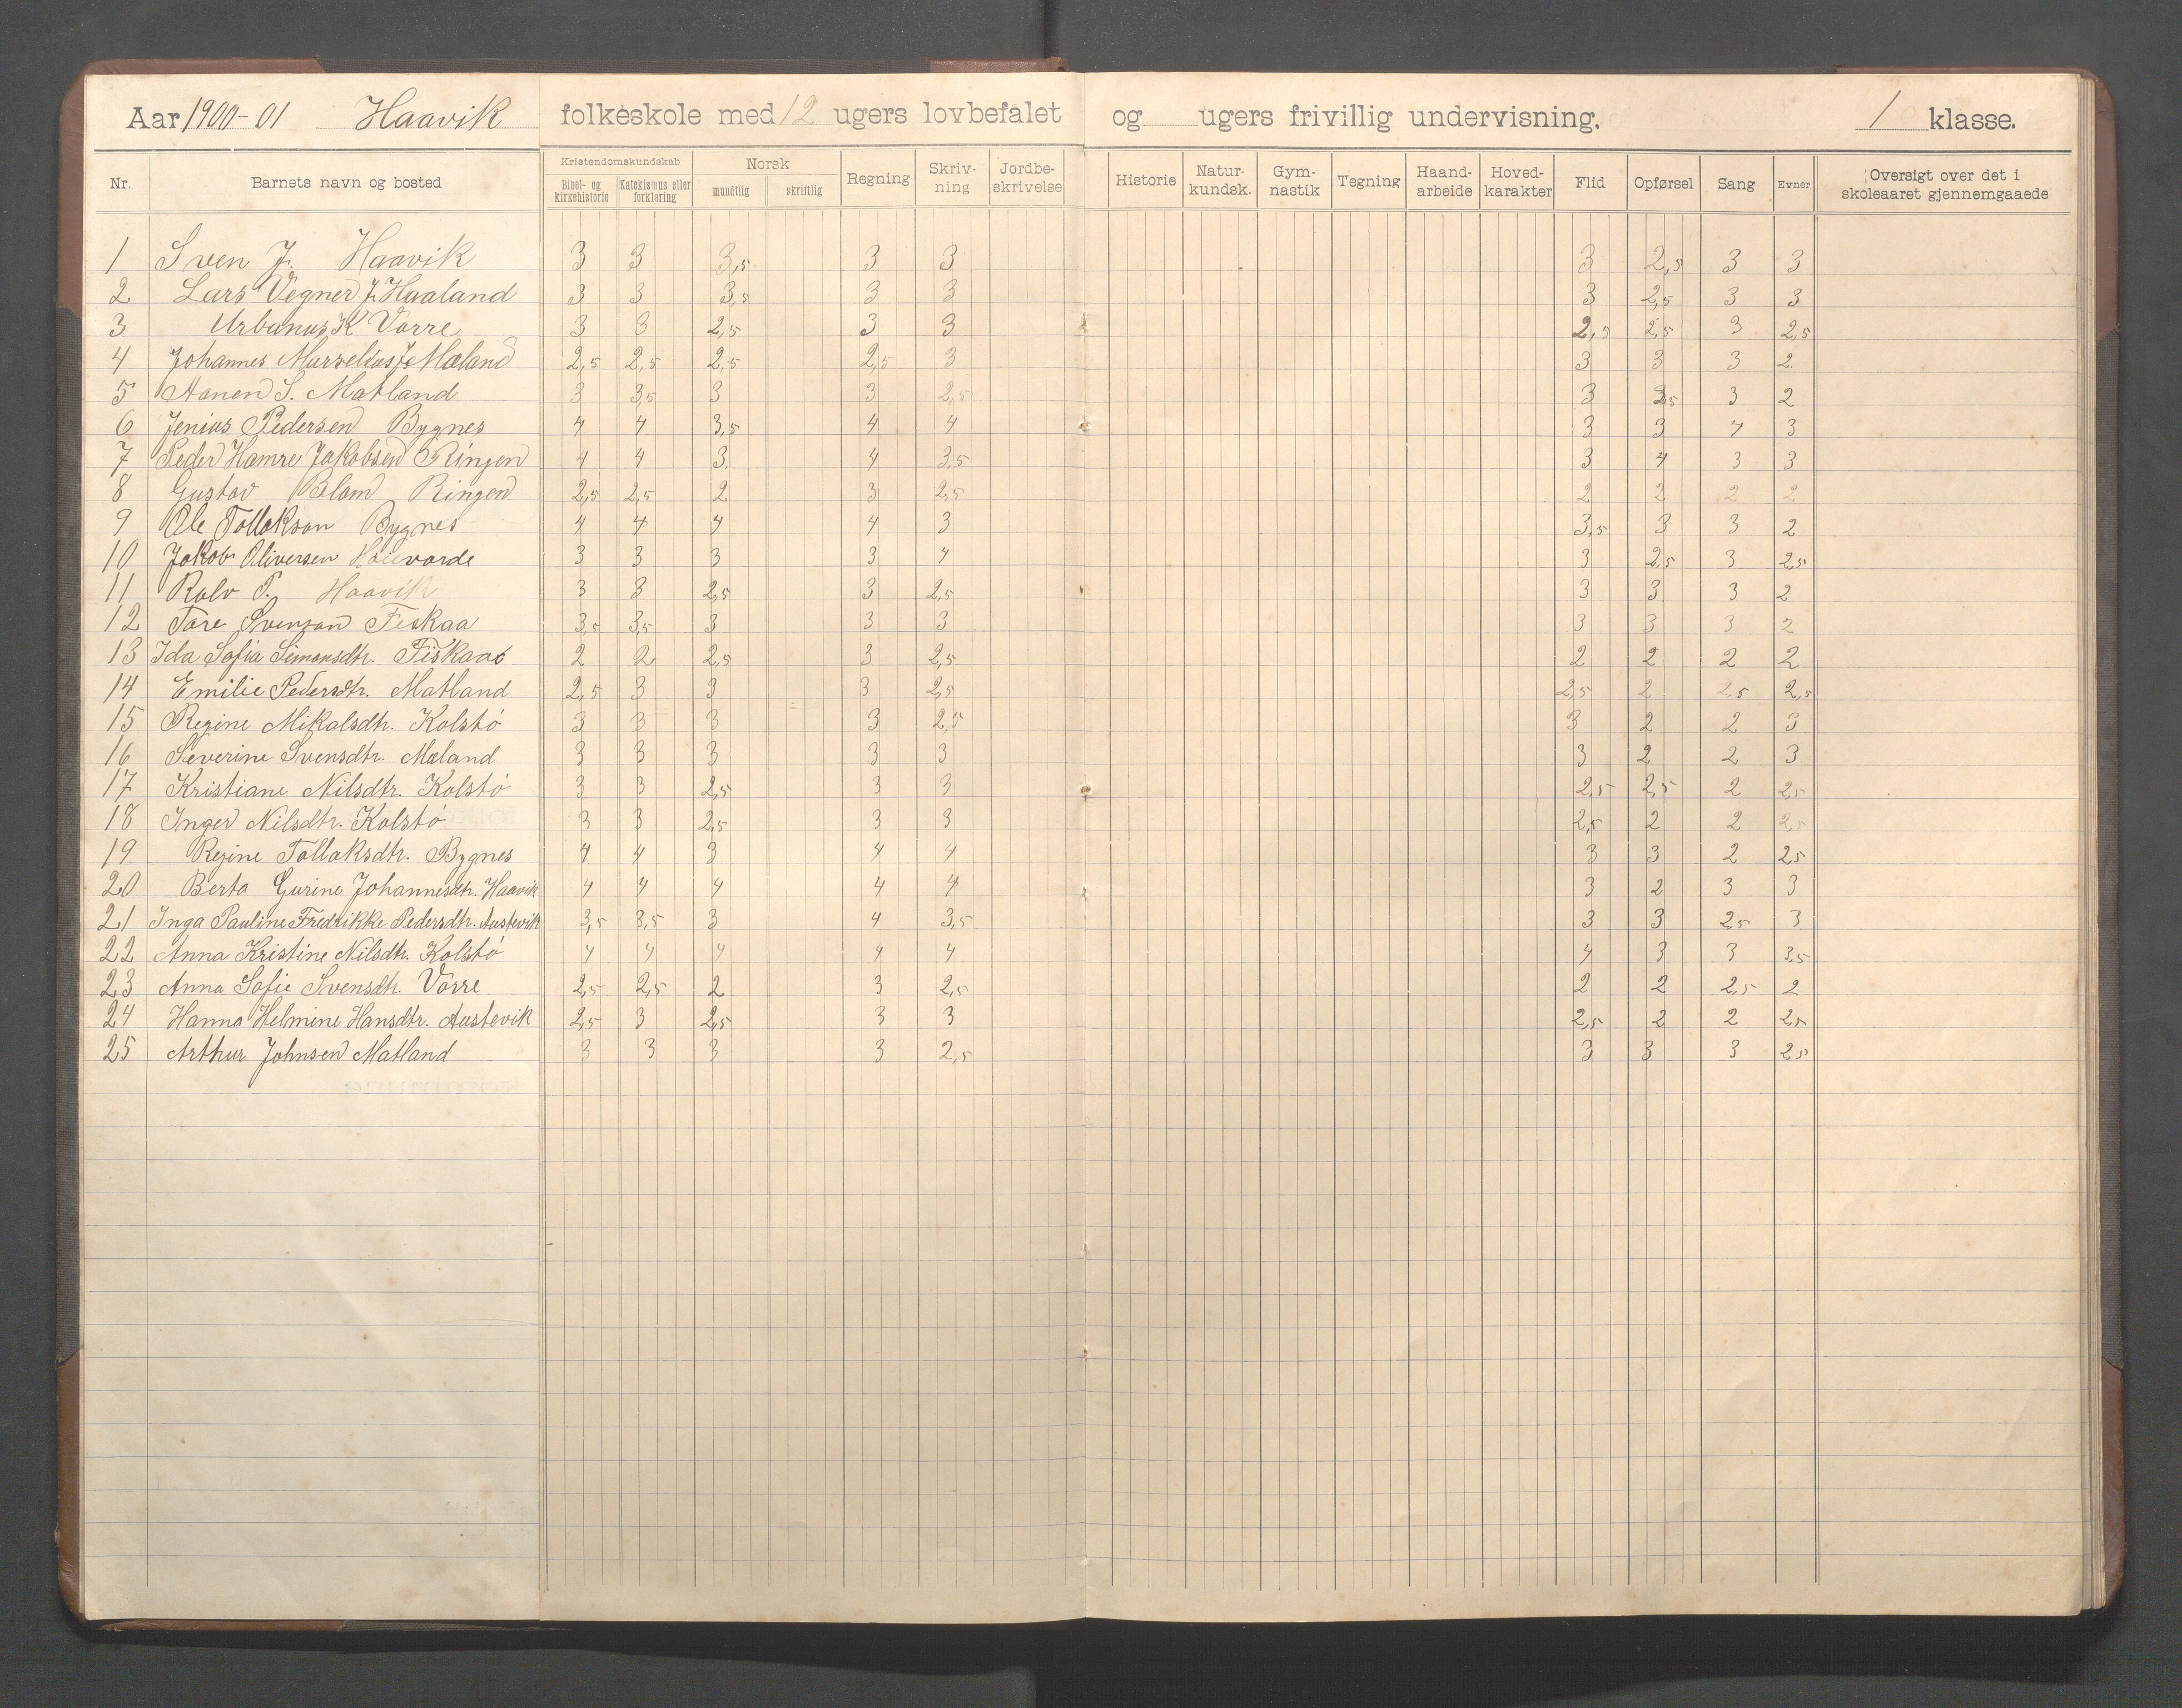 Aar 1900-01 Haavik folkeskole med 12 ugers lovbefalet og ugers frivillig undervisning. 1 klasse.
Nr. Barnets navn og bosted Kristendomskundskab Bibel- og kirkehistorie Katekismus eller forklaring Norsk mundtlig skriftlig Regning Skriv-ning Jordbe-skrivelse Historie Natur-kundsk. Gym-nastik Tegning Haand-arbeide Hoved-karakter Flid Opførsel Sang Evner Oversigt over det i skoleaaret gjennemgaaede
1 Sven J. Haavik 3 3 3,5 3 3 3 2,5 3 3
2 Lars Vegner J. Haaland 3 3 3,5 3 3 3 2,5 3 3
3 Urbanus K Vorre 3 3 2,5 3 3 2,5 2,5 3 2,5
4 Johannes Marselius J. Mæland 2,5 2,5 2,5 2,5 3 3 3 3 2
5 Aanen S. Matland 3 3,5 3 3 2,5 3 3,5 3 2
6 Jenius Pedersen Bygnes 4 4 3,5 4 4 3 3 4 3
7 Peder Hamre Jakobsen Ringen 4 4 3 4 3,5 3 4 3 3
8 Gustav Blom Ringen 2,5 2,5 2 3 2,5 2 2 2 2
9 Ole Tollakson Bygnes 4 4 4 4 3 3,5 3 3 2
10 Jakob Oliversen 3 3 3 3 4 3 2,5 3 2,5
11 Rolv P. Haavik 3 3 2,5 3 2,5 3 3 3 2
12 Tore Svenson Fiskaa 3,5 3,5 3 3 3 3 3 3 2
13 Ida Sofia Simonsdtr. Fiskaa 2 2 2,5 3 2,5 2 2 2 2
14 Emilie Pedersdtr. Matland 2,5 3 3 3 2,5 2,5 2 2,5 2,5
15 Regine Mikalsdtr. Kolstö 3 3 3 3 2,5 3 2 2 3
16 Severine Svensdtr. Mæland 3 3 3 3 3 3 2 2 3
17 Kristiane Nilsdtr. Kolstö 3 3 2,5 3 3 2,5 2,5 2 2,5
18 Inger Nilsdtr. Kolstö 3 3 2,5 3 3 2,5 2 2 2,5
19 Regine Tollaksdtr. Bygnes 4 4 3 4 4 3 3 2 2,5
20 Berta Gurine Johannesdtr. Haavik 4 4 4 4 4 3 2 3 3
21 Inga Pauline Fredrikke Pedersdtr. Austevik 3,5 3,5 3 4 3,5 3 3 2,5 3
22 Anna Kristine Nilsdtr. Kolstö 4 4 4 4 4 4 3 3 3,5
23 Anna Sofie Svensdtr. Vorre 2,5 2,5 2 3 2,5 2 2 2,5 2
24 Hanna Helmine Hansdtr. Austevik 2,5 3 2,5 3 3 2,5 2 2 2,5
25 Arthur Johnsen Matland 3 3 3 3 2,5 3 3 3 2,5